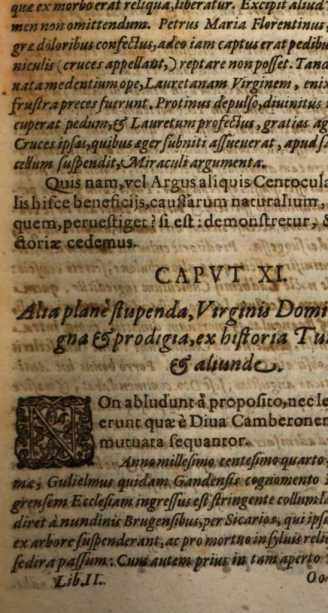 que ex morbo erat reliqua, liberatur. Excipit aliud
men non omittendum. Petrus Maria Florentinus,
grę doloribus confectus, adeo iam captus erat pedibu
niculis (cruces appellant,) reptare non posset. Tand
nata medentium ope, Lauretanam Virginem, enix
frustra preces fuerunt. Protinus depulso, diuinitus
cuperat pedum, & Lauretum profectus, gratias ag
Cruces ipsas, quibus ager subniti assueuerat, apud sa
cellum suspendit, Miraculi argumenta.
Quis nam, vel Argus aliquis Centocula
lis hisce beneficijs, caussarum naturalium,
quem, peruestiget? si est: demonstretur, &
ctoriæ cedemus.
CAPVT XI.
Alia planè stupenda, Virginis Domi
gna & prodigia, ex historia Tu
& aliunde.
NOn abludunt à proposito, nec le
erunt quæ è Diua Camberonen
mutuata sequantor.
Anno millesimo centesimo quarto
mæ, Gulielmus quidam Gandensis cognomento
grensem Ecclesiam ingressus est stringente collum la
diret à nundinis Brugensibus, per Sicarios, qui ips
ex arbore suspenderant, ac pro mortuo in syluis reli
fedira passum: Cum autem prius in tam aperto
Lib. II. Oo